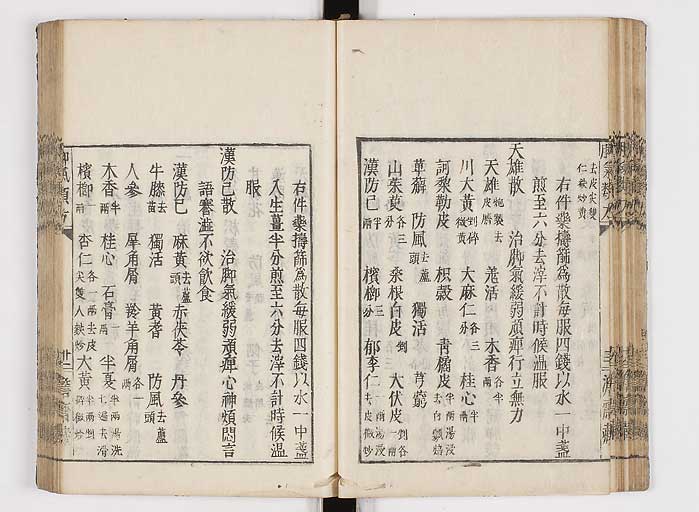 去皮尖雙
仁麩炒黃
右件藥擣篩爲散每服四錢以水一中盞
煎至六分去滓不計時候溫服
天雄散 治脚氣緩弱頑痺行立無力
天雄炮製去皮臍 羌活 木香各一兩
川大黃剉碎微黃 大麻仁各三分 桂心半兩
訶棃勒皮 枳殼 青橘皮半兩湯浸去白瓤焙
萆薢 防風去蘆頭 獨活 芎藭
山茱萸各三分 桑根白皮剉 大伏皮剉各一兩
漢防己半兩 檳榔三分 郁李仁去皮微炒
右件藥擣篩爲散每服四錢以水一中盞
入生薑半分煎至六分去滓不計時候溫
服
漢防己散 治脚氣緩弱頑痺心神煩悶言
語謇澁不欲飲食
漢防己 麻黃去蘆頭 赤茯苓 丹參
牛膝去苗 獨活 黃耆 防風去蘆頭
人參 犀角屑 羚羊角屑各一兩
木香半兩 桂心 石膏一兩 半夏半兩湯洗七遍去滑
檳榔一兩 杏仁各一兩去皮尖雙人麩炒 大黃半兩剉碎微炒